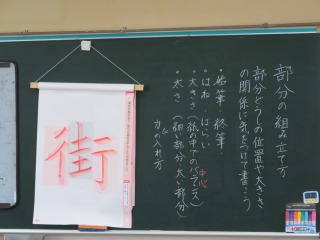 部分の組み立て方
部分どうしの位置や大きさ
の関係に気をつけて書こう
・始筆 終筆
・はね はらい
・大きさ(紙の中でのバランス)
中心
・太さ(細い部分太い部分)
力の入れ方
街